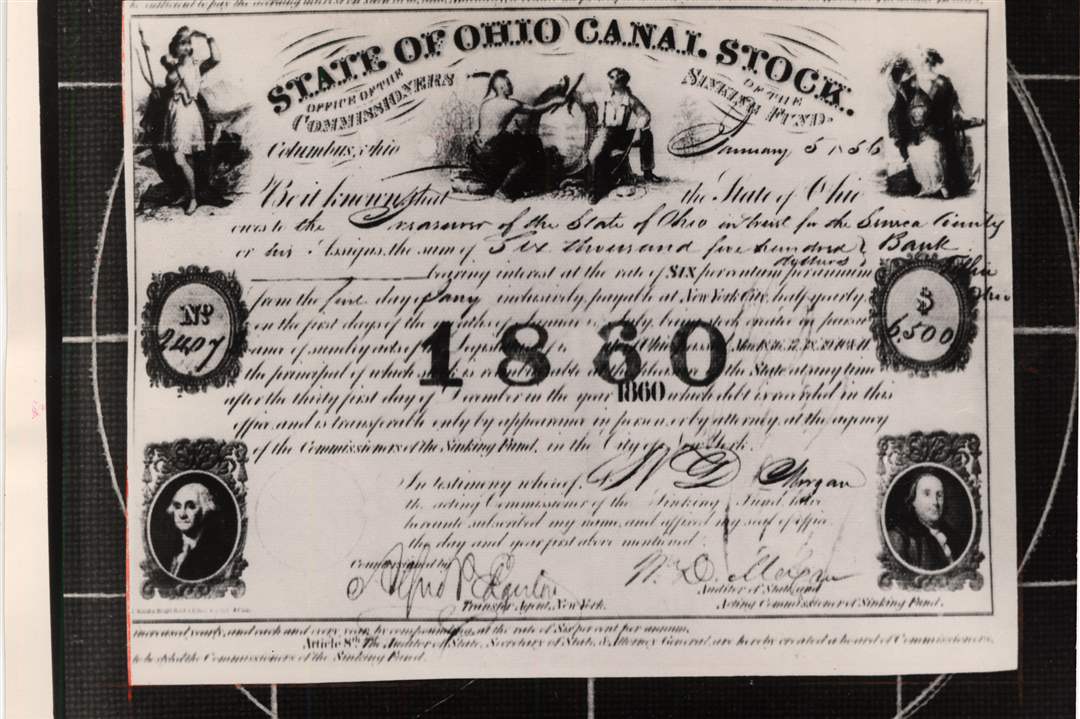 STATE OF OHIO CANAL STOCK.
OFFICE OF THE
COMMISSIONERS
OF THE
SINKING FUND.
Columbus, Ohio
January 5 1856
Be it known, that the State of Ohio
owes to the Treasurer of the State of Ohio in trust for the Seneca County
or his Assigns, the sum of Six thousand five hundred Bank
dollars
bearing interest at the rate of SIX per centum per annum
Ohio
from the first day of Jany inclusively, payable at New York City, half yearly,
on the first days of the months of January & July, being stock created in
sance of sundry acts of the Legislature of Ohio
the principal of which stock is reimbursable at the pleasure of the State at any time
after the thirty first day of December in the year 1860 which debt is recorded in this
office, and is transferable only by appearance in person, or by attorney, at the agency
of the Commissioners of the Sinking Fund, in the City of New York.
1860
No
2407
$
6,500
In testimony whereof, I W D Morgan
the acting Commissioner of the Sinking Fund have
hereunto subscribed my name, and affixed my seal of office
the day and year first above mentioned
Countersigned by
Transfer Agent, New York.
W. D. Morgan
Auditor of State, and
Acting Commissioner of Sinking Fund.
yearly, and each and every year, by compounding, at the rate of Six per cent per annum,
Article 8th The Auditor of State, Secretary of State, & Attorney General, are hereby created a board of Commissioners,
to be styled the Commissioners of the Sinking Fund.